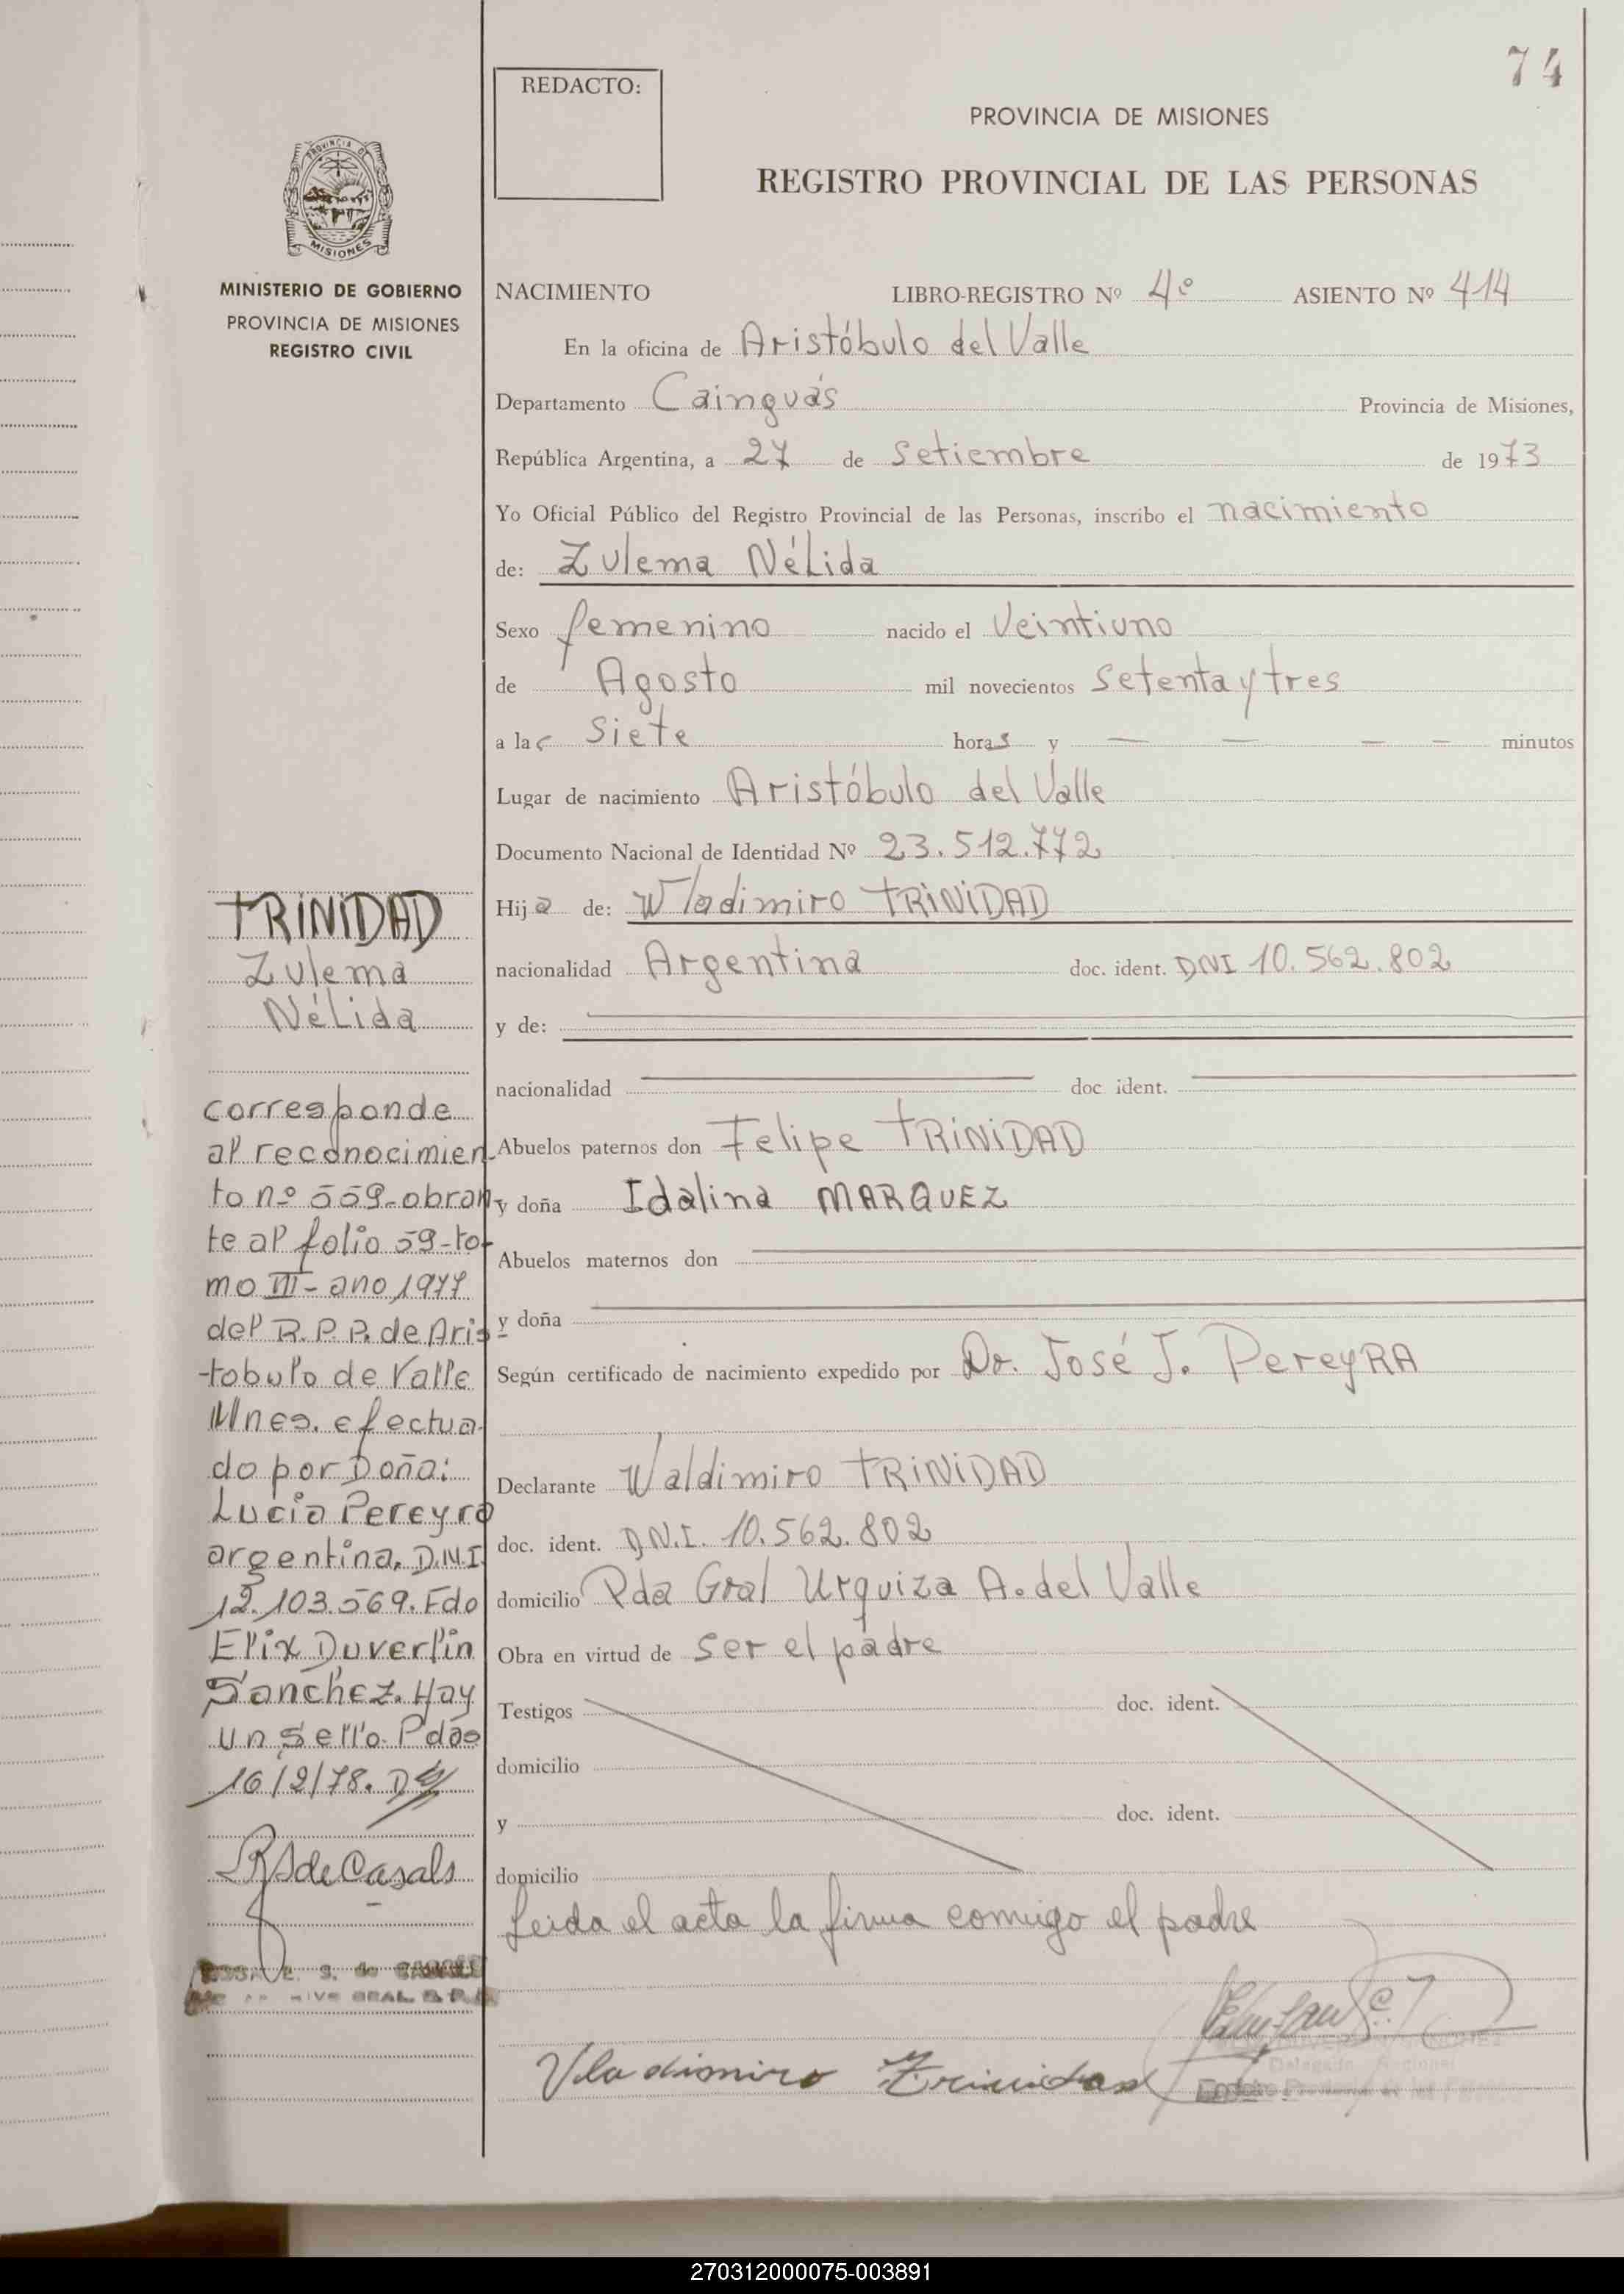 74
REDACTO:
PROVINCIA DE MISIONES
REGISTRO PROVINCIAL DE LAS PERSONAS
PROVINCIA DE
MISIONES
MINISTERIO DE GOBIERNO
PROVINCIA DE MISIONES
REGISTRO CIVIL
NACIMIENTO LIBRO-REGISTRO Nº 4º ASIENTO Nº 414
En la oficina de Aristóbulo del Valle
Departamento Cainguás Provincia de Misiones,
República Argentina, a 27 de setiembre de 1973
Yo Oficial Público del Registro Provincial de las Personas, inscribo el nacimiento
de: Zulema Nélida
Sexo femenino nacido el Veintiuno
de Agosto mil novecientos setenta y tres
a las siete horas y — — — — minutos
Lugar de nacimiento Aristóbulo del Valle
Documento Nacional de Identidad Nº 23.512.772
Hija de: Wladimiro TRINIDAD
nacionalidad Argentina doc. ident. DNI 10.562.802
y de:
nacionalidad doc ident.
Abuelos paternos don Felipe TRINIDAD
y doña Idalina MARQUEZ
Abuelos maternos don
y doña
Según certificado de nacimiento expedido por Dr. José J. PereyRA
Declarante Waldimiro TRINIDAD
doc. ident. D.N.I. 10.562.802
domicilio Pda Gral Urquiza A. del Valle
Obra en virtud de ser el padre
Testigos doc. ident.
domicilio
y doc. ident.
domicilio
Leida el acta la firma conmigo el padre
Vladimiro Trinidad
TRINIDAD
Zulema
Nélida
corresponde
al reconocimien
to nº 559-obran
te al folio 59-to-
mo III- año 1977
del R.P.P. de Aris
-tobulo de Valle
Mnes. efectua-
do por Doña:
Lucia Pereyra
argentina, D.N.I.
12.103.569. Fdo
Elix Duverlin
Sanchez. Hay
un sello. Pdas
16/2/78.
RS de Casals
270312000075-003891